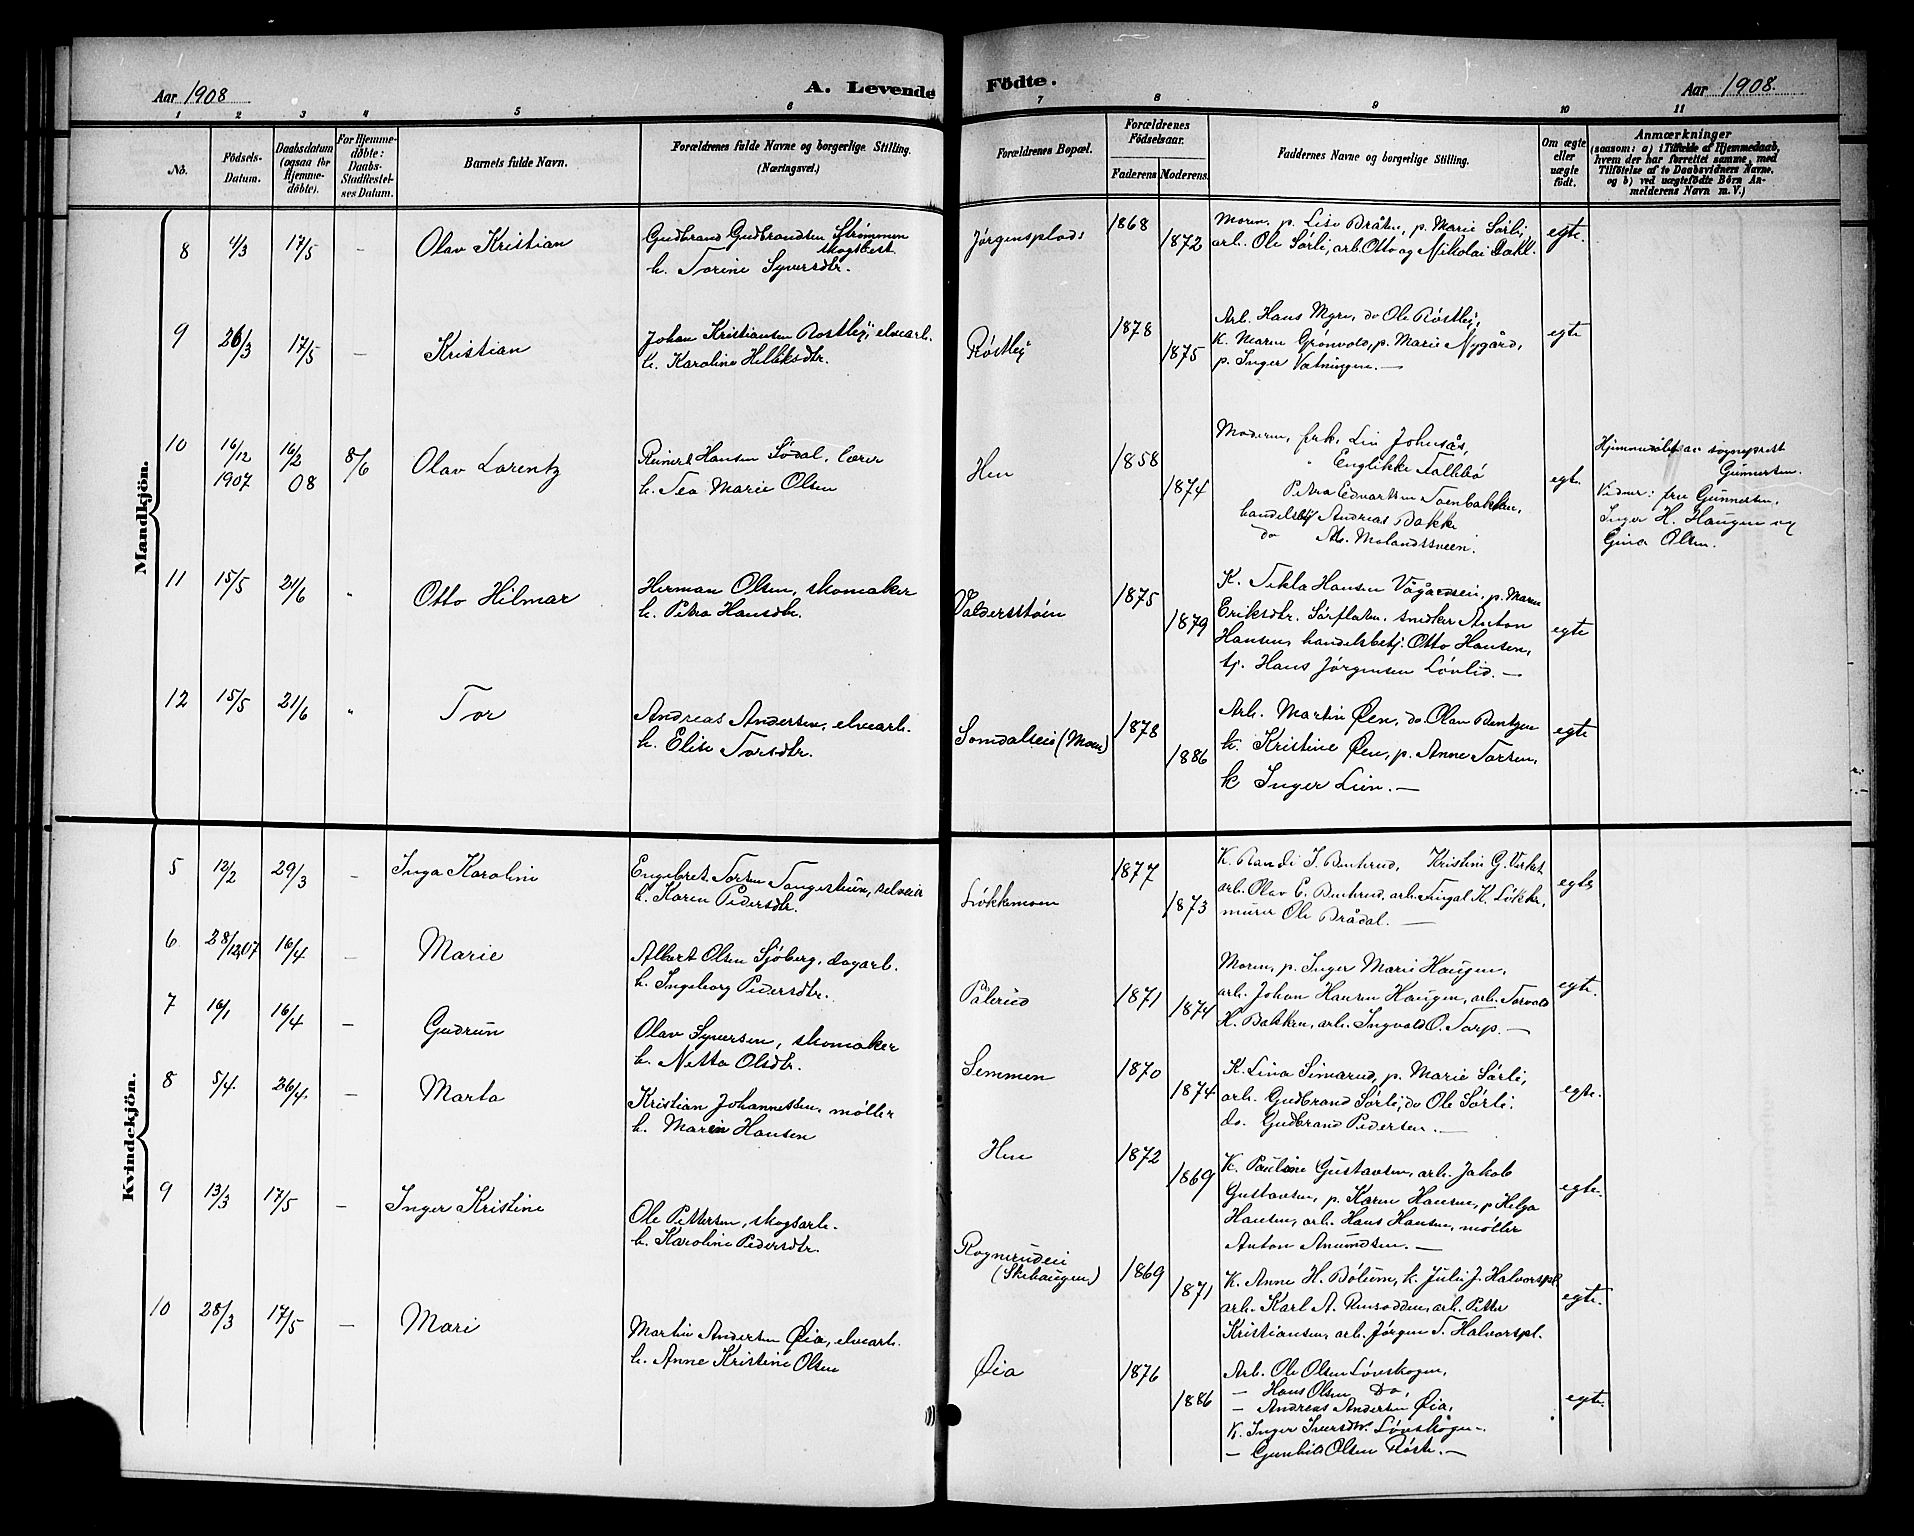 Aar 1908
A. Levende Födte.
Aar 1908.
1 2 3 4 5 6 7 8 9 10 11
No.
Födsels-Datum.
Daabsdatum (ogsaa for Hjemme-döbte).
For Hjemme-döbte: Daabs-Stadfæstel-ses Datum.
Barnets fulde Navn.
Forældrenes fulde Navne og borgerlige Stilling. (Næringsvei.)
Forældrenes Bopæl.
Forældrenes Födselsaar.
Faderens Moderens.
Faddernes Navne og borgerlige Stilling.
Om ægte eller uægte födt.
Anmærkninger
(saasom: a) i Tilfælde af Hjemmedaab, hvem der har forrettet samme, med Tilföielse af to Daabsvidners Navne, og b) ved uægtefödte Börn Anmelderens Navn m. V.)
Mandkjön.
8 4/3 17/5 – Olav Kristian
Gudbrand Gudbrandsen Strømmen
skogsbest.
h. Torine Syversdtr.
Jørgensplads 1868 1872
Moren, p. Lise Bråten, p. Marie Sørli,
arb. Ole Sørli, arb. Otto og Nikolai Dahl.
egte.
9 26/3 17/5 – Kristian
Johan Kristiansen Røstlej, elvearb.
h. Karoline Helliksdtr.
Røstlej 1878 1875
Arb. Hans Myre, do Ole Røstlej,
K. Maren Grønvold, p. Marie Nygård,
p. Inger Vætningen. —
egte
10 16/12 1907 16/2 08 8/6 Olav Lorentz
Reinert Hansen Sødal, lærer
h. Tea Marie Olsen
Hen 1858 1874
Moderen, frk. Liv Johnsås,
" Englikke Falkbø
Petra Edvartsen Toenbakken,
handelsbtj Andreas Bakke
do Alb. Molandssveen.
egt.
Hjemmedøbt av sogneprest
Gunnersen.
Vidner: fru Gunnersen,
Inger H. Haugen og
Gina Olsen.
11 15/5 21/6 " Otto Hilmar
Herman Olsen, skomaker
h. Petra Hansdtr.
Valdersstøin 1875 1879
K. Tekla Hansen Vågårdseie, p. Maren
Eriksdtr. Sørflaten, snedker Anton
Hansen, handelsbetj. Otto Hansen,
tj. Hans Jørgensen Løvlid. —
egte
12 15/5 21/6 " Tor
Andreas Andersen, elvearb.
h. Elise Torsdtr.
Somdalseie (Moen) 1878 1886
Arb. Martin Øen, do. Olav Bentzen
k. Kristine Øen, p. Anne Torsen,
k Inger Lien. —
egte
Kvindekjön.
5 12/2 29/3 – Inga Karoline
Engebret Torsen Tangestuen, selveier
h. Karen Pedersdtr.
Løkkemoen 1877 1873
K. Randi J. Bentrud, Kristine G. Virket
arb. Olav E. Bentrud, arb. Fingal K. Løkke,
murer Ole Brådal. —
egte
6 28/12 07 16/4 – Marie
Albert Olsen Sjøberg, dagarb.
h. Ingeborg Pedersdtr.
Pålerud 1871 1874
Moren, p. Inger Marie Haugen,
arb. Johan Hansen Haugen, arb. Torvald
H. Bakken, arb. Ingvald O. Torp. —
egte.
7 16/1 16/4 – Gudrun
Olav Syversen, skomaker
h. Netta Olsdtr.
Semmen 1870 1874
K. Lina Simarud, p. Marie Sørli,
arb. Gudbrand Sørli, do Ole Sørli,
do. Gudbrand Pedersen. —
egte.
8 5/4. 26/4. – Marta
Kristian Johannessen, møller
h. Maren Hansen
Hen 1872 1869
K. Pauline Gustavsen, arb. Jakob
Gustavsen, p. Karen Hansen, p Helga
Hansen, arb. Hans Hansen, møller
Anton Anundsen. —
egte.
9 13/3 17/5 – Inger Kristine
Ole Pettersen, skogsarb.
h. Karoline Pedersdtr.
Rognerudeie
(Skihaugen) 1869 1871
K. Anne H. Bølum, k. Julie J. Halvorspl.
arb. Karl A. Rensødden, arb. Petter
Kristiansen, arb. Jørgen T. Halvorspl.
egte.
10 28/3 17/5 – Mari
Martin Andersen Øia, elvearb.
h. Anne Kristine Olsen
Øia 1876 1886
Arb. Ole Olsen Løveskogen,
— Hans Olsen Do,
— Andreas Andersen Øia,
K. Inger Iversdtr. Løveskogen.
— Gunhild Olsen Røste. —
egte.